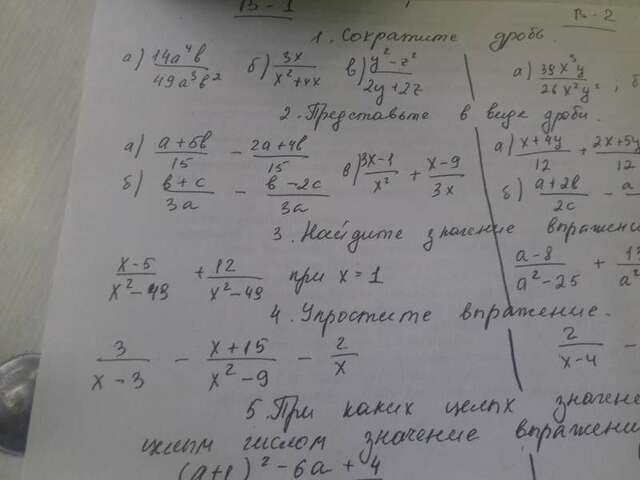 В-1
В-2
1. Сократите дробь.
а) 14a⁴b / 49a³b² б) 3x / x²+4x в) y²-z² / 2y+2z
а) 39x³y / 26x²y², б
2. Представьте в виде дроби.
а) a+5b / 15 - 2a+4b / 15 в) 3x-1 / x² + x-9 / 3x
б) b+c / 3a - b-2c / 3a
а) x+4y / 12 + 2x+5y / 12
б) a+2b / 2c - a
3. Найдите значение впражени
x-5 / x²-49 + 12 / x²-49 при x=1
a-8 / a²-25 + 13 / a²
4. Упростите впражение.
3 / x-3 - x+15 / x²-9 - 2 / x
2 / x-4 -
5 При каких целых значени
целым числом значение впражени
(a+1)²-6a+4